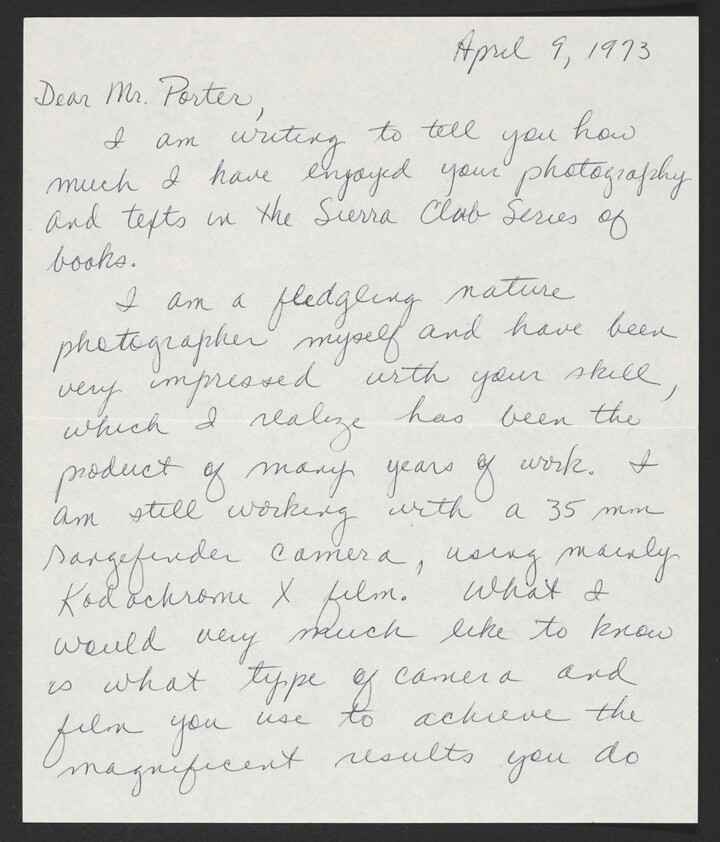 April 9, 1973
Dear Mr. Porter,
I am writing to tell you how
much I have enjoyed your photography
and texts in the Sierra Club Series of
books.
I am a fledgling nature
photographer myself and have been
very impressed with your skill,
which I realize has been the
product of many years of work. I
am still working with a 35 mm
rangefinder camera, using mainly
Kodachrome X film. What I
would very much like to know
is what type of camera and
film you use to achieve the
magnificent results you do